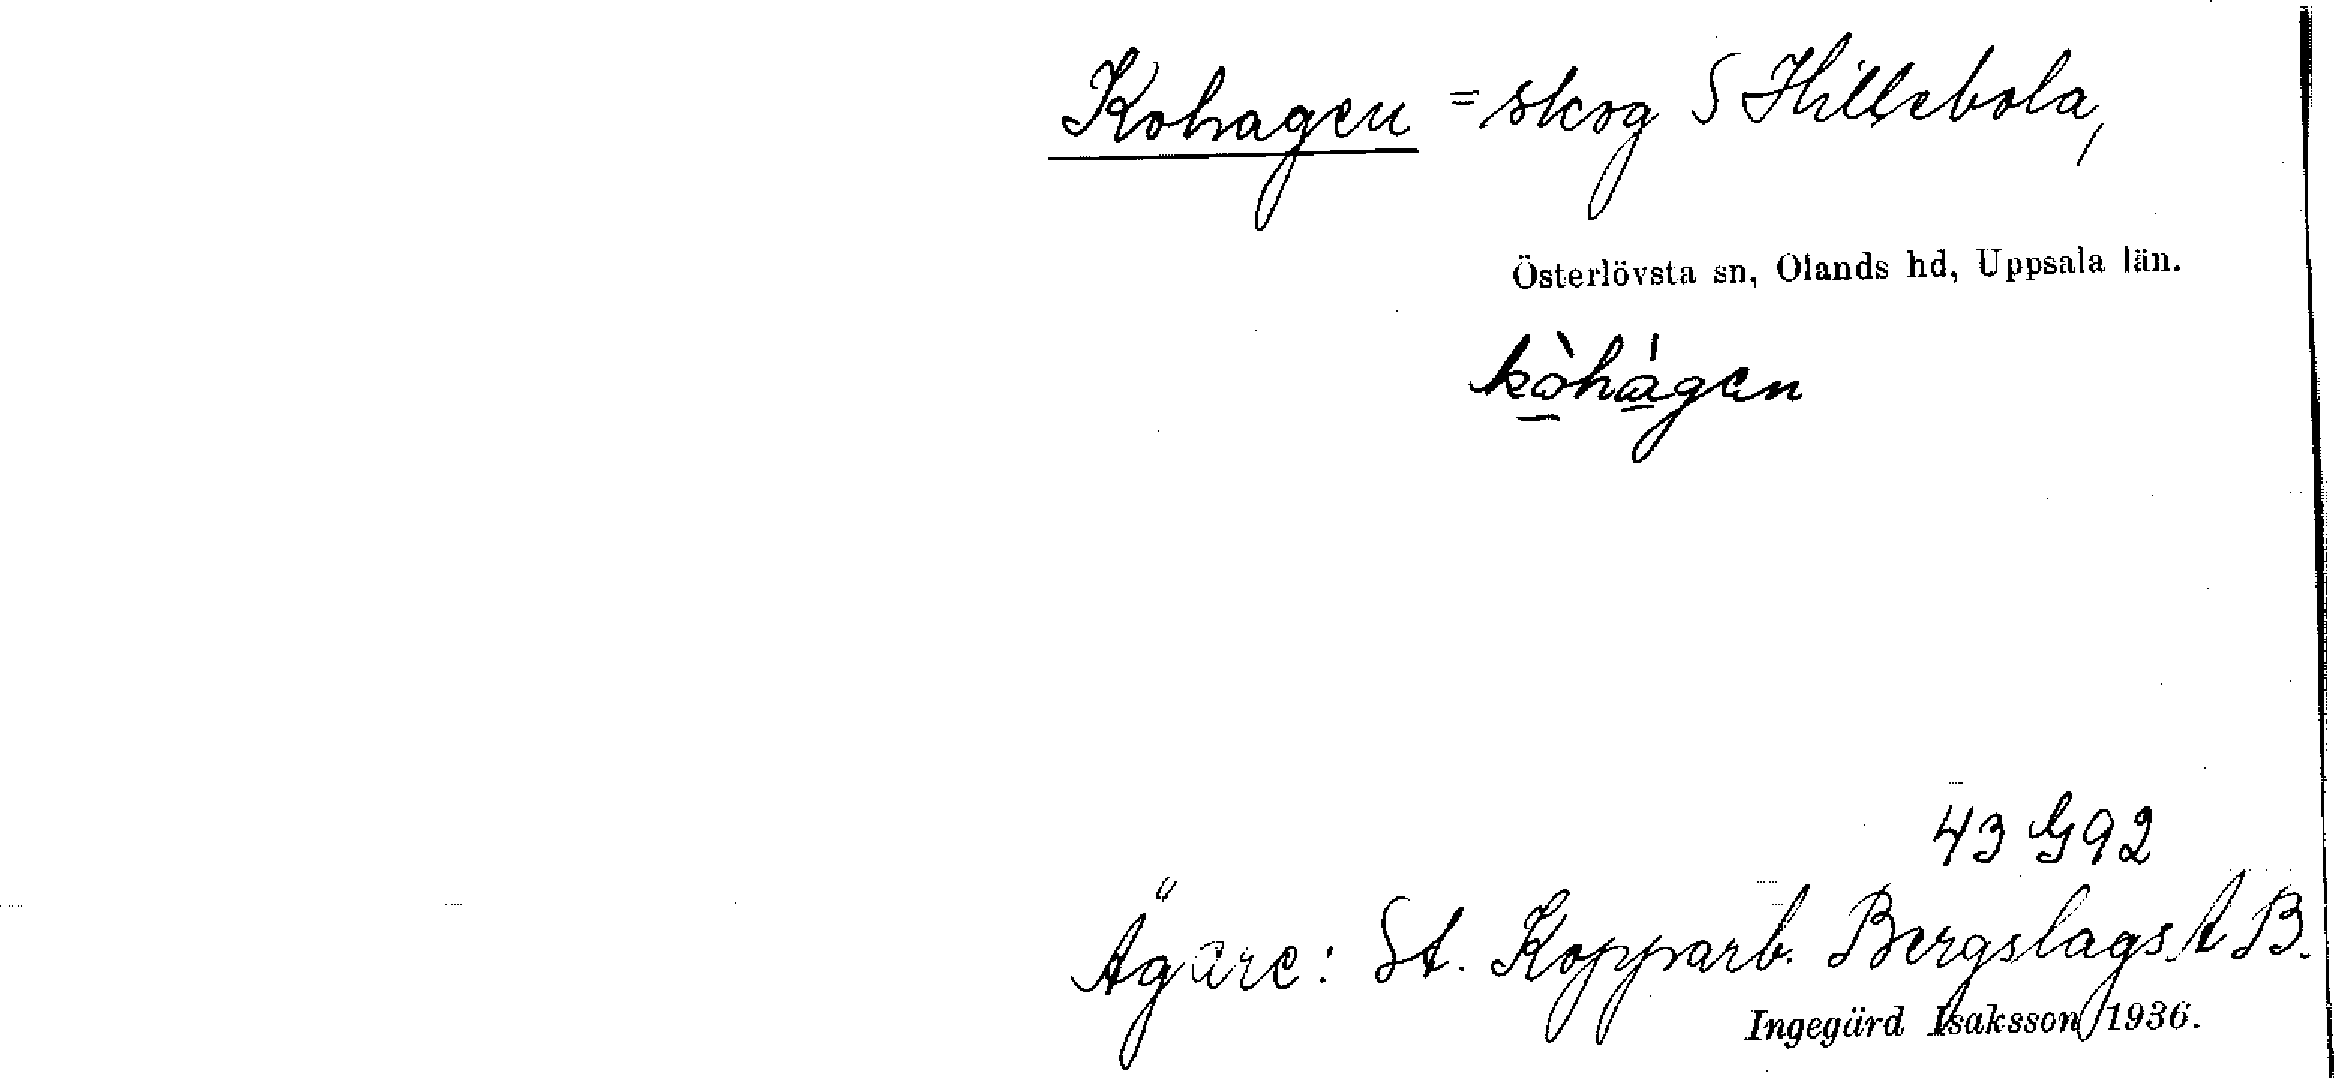 Kohagen = skog S Hillebola,
Österlövsta sn, Olands hd, Uppsala län.
kòhágen
43 G92
Ägare: St. Kopparb. Bergslags A B.
Ingegärd Isaksson 1936.